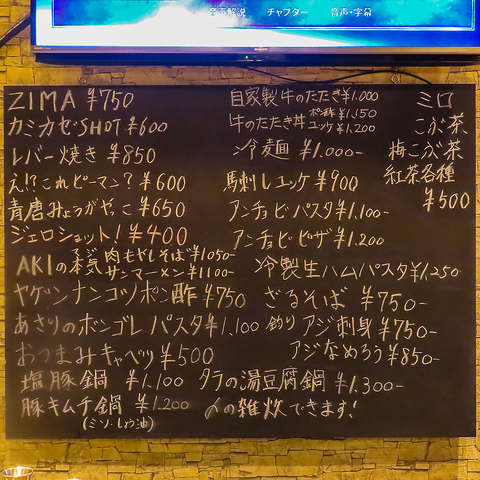 音声解説 チャプター 音声・字幕
ZIMA ¥750
カミカゼSHOT ¥600
レバー焼き ¥850
え!?これピーマン? ¥600
青唐みょうがやっこ ¥650
ジェロショット! ¥400
AKIの本気 マジ 肉もやしそば ¥1050-
サンマーメン ¥1100-
ヤゲンナンコツポン酢 ¥750
あさりのボンゴレパスタ ¥1,100
おつまみキャベツ ¥500
塩豚鍋 ¥1,100
豚キムチ鍋 ¥1.200
(ミソ・しょう油)
自家製牛のたたき ¥1.000
牛のたたき丼 ポン酢 ¥1,150
ユッケ ¥1.200
冷麺 ¥1.000-
馬刺しユッケ ¥900
アンチョビパスタ ¥1.100-
アンチョビピザ ¥1.200
冷製生ハムパスタ ¥1,250
ざるそば ¥750-
釣りアジ刺身 ¥750-
アジなめろう ¥850-
タラの湯豆腐鍋 ¥1.300-
〆の雑炊できます!
ミロ
こぶ茶
梅こぶ茶
紅茶各種
¥500